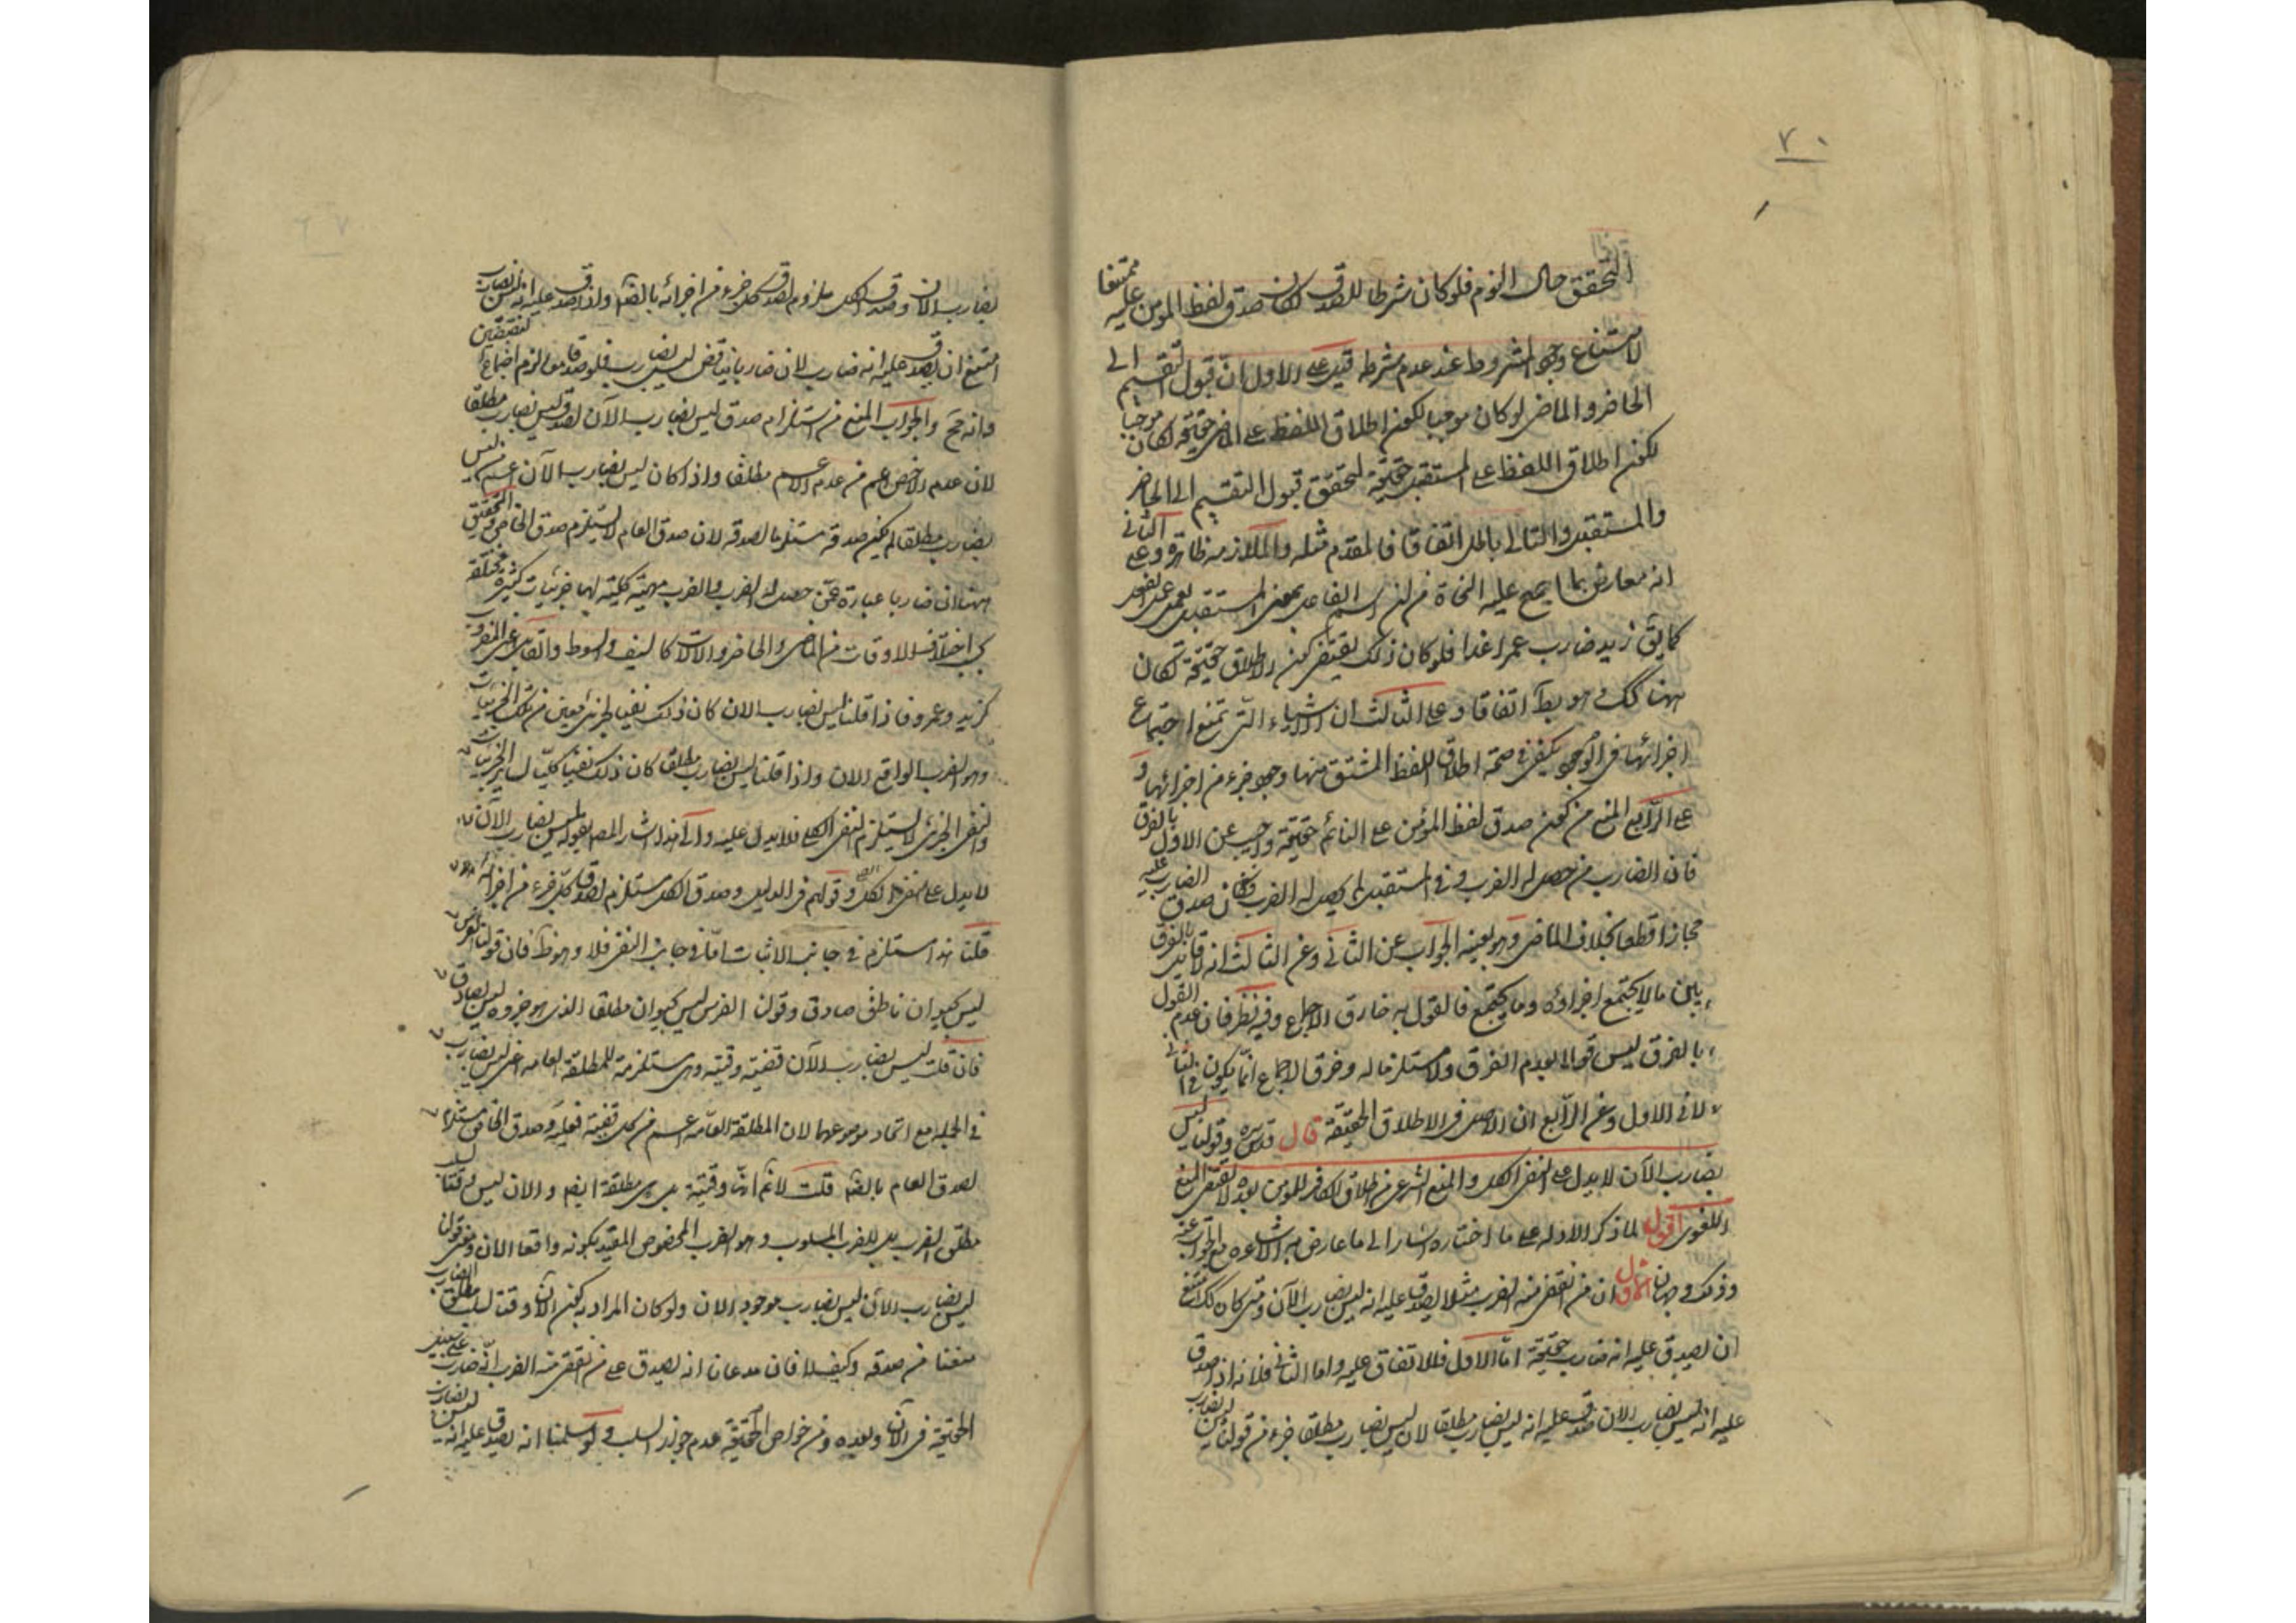 ٧٠
التحقق حال النوم فلو كان شرطا للصدق لكان صدق لفظ المؤمن عليه ممتنعا
لامتناع وجود المشروط عند عدم شرطه قيل على الاول ان قبول التقسيم الى
الحاضر والماضى لو كان موجبا لكون اطلاق اللفظ على الماضى حقيقة لكان موجبا
لكون اطلاق اللفظ على المستقبل حقيقة لتحقق قبول التقسيم الى الحاضر
والمستقبل والتالى باطل اتفاقا فالمقدم مثله والملازمة ظاهرة وعلى الثانى
انه معارض بما اصح عليه النحاة من ان اسم الفاعل بمعنى المستقبل يعمل عمل الفعل
كما يق زيد ضارب عمرا غدا فلو كان ذلك يقتضى كون الاطلاق حقيقة لكان
ههنا كك وهو بط اتفاقا وعلى الثالث ان الاشياء التى تمتنع اجتماع
اجزائها فى الوجود يكفى فى صحة اطلاق اللفظ المشتق منها وجود جزء من اجزائها و
على الرابع المنع من كون صدق لفظ المؤمن على النائم حقيقة واجيب عن الاول بالفرق
فان الضارب من حصل له الضرب وفى المستقبل لم يحصل له الضرب فكان صدق الضارب عليه
مجازا قطعا بخلاف الماضى وهو بعينه الجواب عن الثانى وعن الثالث انه لا قايل بالفرق
بين ما لا يجتمع اجزاؤه وما يجتمع فالقول به خارق الاجماع وفيه نظر فان عدم القول
بالفرق ليس قولا بعدم الفرق ولا مستلزما له وخرق الاجماع انما يكون فى الثانى
لا فى الاول وعن الرابع ان الاصل فى الاطلاق الحقيقة قال قدس سره وقولنا ليس
بضارب الآن لا يدل على نفى الكل والمنع الشرعى من اطلاق الكافر للمؤمن بعده لا يقتضى المنع
اللغوى اقول لما ذكر الادلة على ما اختاره اشار الى ما عارض به الاشاعرة مع الجواب عنه
وذلك وجهان الاول ان من انقضى منه الضرب مثلا يصدق عليه انه ليس بضارب الآن ومتى كان كك امتنع
ان يصدق عليه انه ضارب حقيقة اما الاول فللاتفاق عليه واما الثانى فلانه اذا صدق
عليه انه ليس بضارب الآن صدق عليه انه ليس بضارب مطلقا لان ليس بضارب مطلقا جزء من قولنا ليس بضارب
بضارب الآن وصدق الكل ملزوم لصدق كل جزء من اجزائه بالضرورة واذا صدق عليه انه ليس بضارب
امتنع ان يصدق عليه انه ضارب لان ضاربا يناقض ليس بضارب فلو صدقا معا لزم اجتماع النقيضين
وانه مح والجواب المنع من استلزام صدق ليس بضارب الآن لصدق ليس بضارب مطلقا
لان عدم الاخص اعم من عدم الاعم مطلقا واذا كان ليس بضارب الآن اعم من ليس
بضارب مطلقا لم يكن صدقه مستلزما لصدقه لان صدق العام لا يستلزم صدق الخاص والتحقيق
ههنا ان ضاربا عبارة عمن حصل له الضرب والضرب مهية كلية لها جزئيات كثيرة مختلفة
بحسب اختلاف الاوقات من الماضى والحاضر والالات كالسيف والسوط والقابل اعنى المضروب
كزيد وعمرو فاذا قلنا ليس بضارب الان كان ذلك نفيا لجزئى معين من تلك الجزئيات
وهو الضرب الواقع الان واذا قلنا ليس بضارب مطلقا كان ذلك نفيا كليا لساير الجزئيات
ونفى الجزئى لا يستلزم نفى الكلى فلا يدل عليه والى هذا اشار المص بقوله ليس بضارب الآن
لا يدل على نفى الكل وقولهم فى الدليل وصدق الكل مستلزم لصدق كل جزء من اجزائه
قلنا هذا مستلزم فى جانب الاثبات اما فى جانب النفى فلا وهو ظ فان قولنا الفرس
ليس بحيوان ناطق صادق وقولنا الفرس ليس بحيوان مطلقا الذى هو جزوه ليس بصادق
فان قلت ليس بضارب الآن قضية وقتية وهى مستلزمة للمطلقة العامة اعنى ليس بضارب
فى الجملة مع اتحاد موضوعهما لان المطلقة العامة اعم من كل قضية فعلية وصدق الخاص مستلزم
لصدق العام بالضرورة قلت لا نم انها وقتية بل هى مطلقة ايضا والان ليس وقتا لسلب
مطلق الضرب بل للضرب المسلوب وهو الضرب المخصوص المقيد بكونه واقعا الان ومعنى قولنا
ليس بضارب الان ليس بضارب موجود الان ولو كان المراد به كون الآن وقتا لسلب مطلق الضارب
منعنا من صدقه وكيف لا فان مدعانا انه يصدق على من انقضى منه الضرب انه ضارب على سبيل
الحقيقة فى الآن وبعده ومن خواص الحقيقة عدم جواز السلب ولو سلمنا انه يصدق عليه انه ليس بضارب